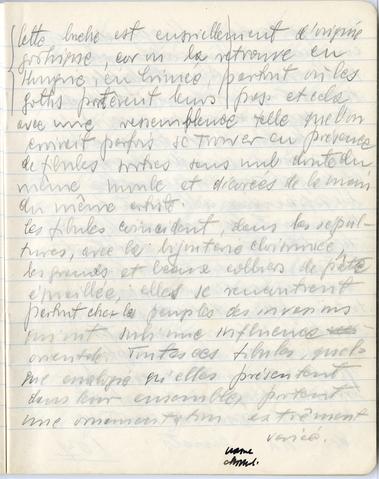 Cette broche est essentiellement d'origine
gothique, car on la retrouve en
Hongrie, en Crimée, partout où les
goths portèrent leurs pas. et cela
avec une ressemblance telle que l'on
croirait parfois se trouver en présence
de fibules sorties sans nul doute du
même moule et décorées de la main
du même artiste.
Les fibules coïncident, dans les sépul-
tures, avec la bijouterie cloisonnée,
les grands et beaux colliers de pâte
émaillée, elles se rencontrent
partout chez les peuples des invasions
ayant subi une influence
orientale. Toutes ces fibules, quel-
que analogie qu'elles présentent
dans leur ensemble portent
une ornementation extrêmement
variée.